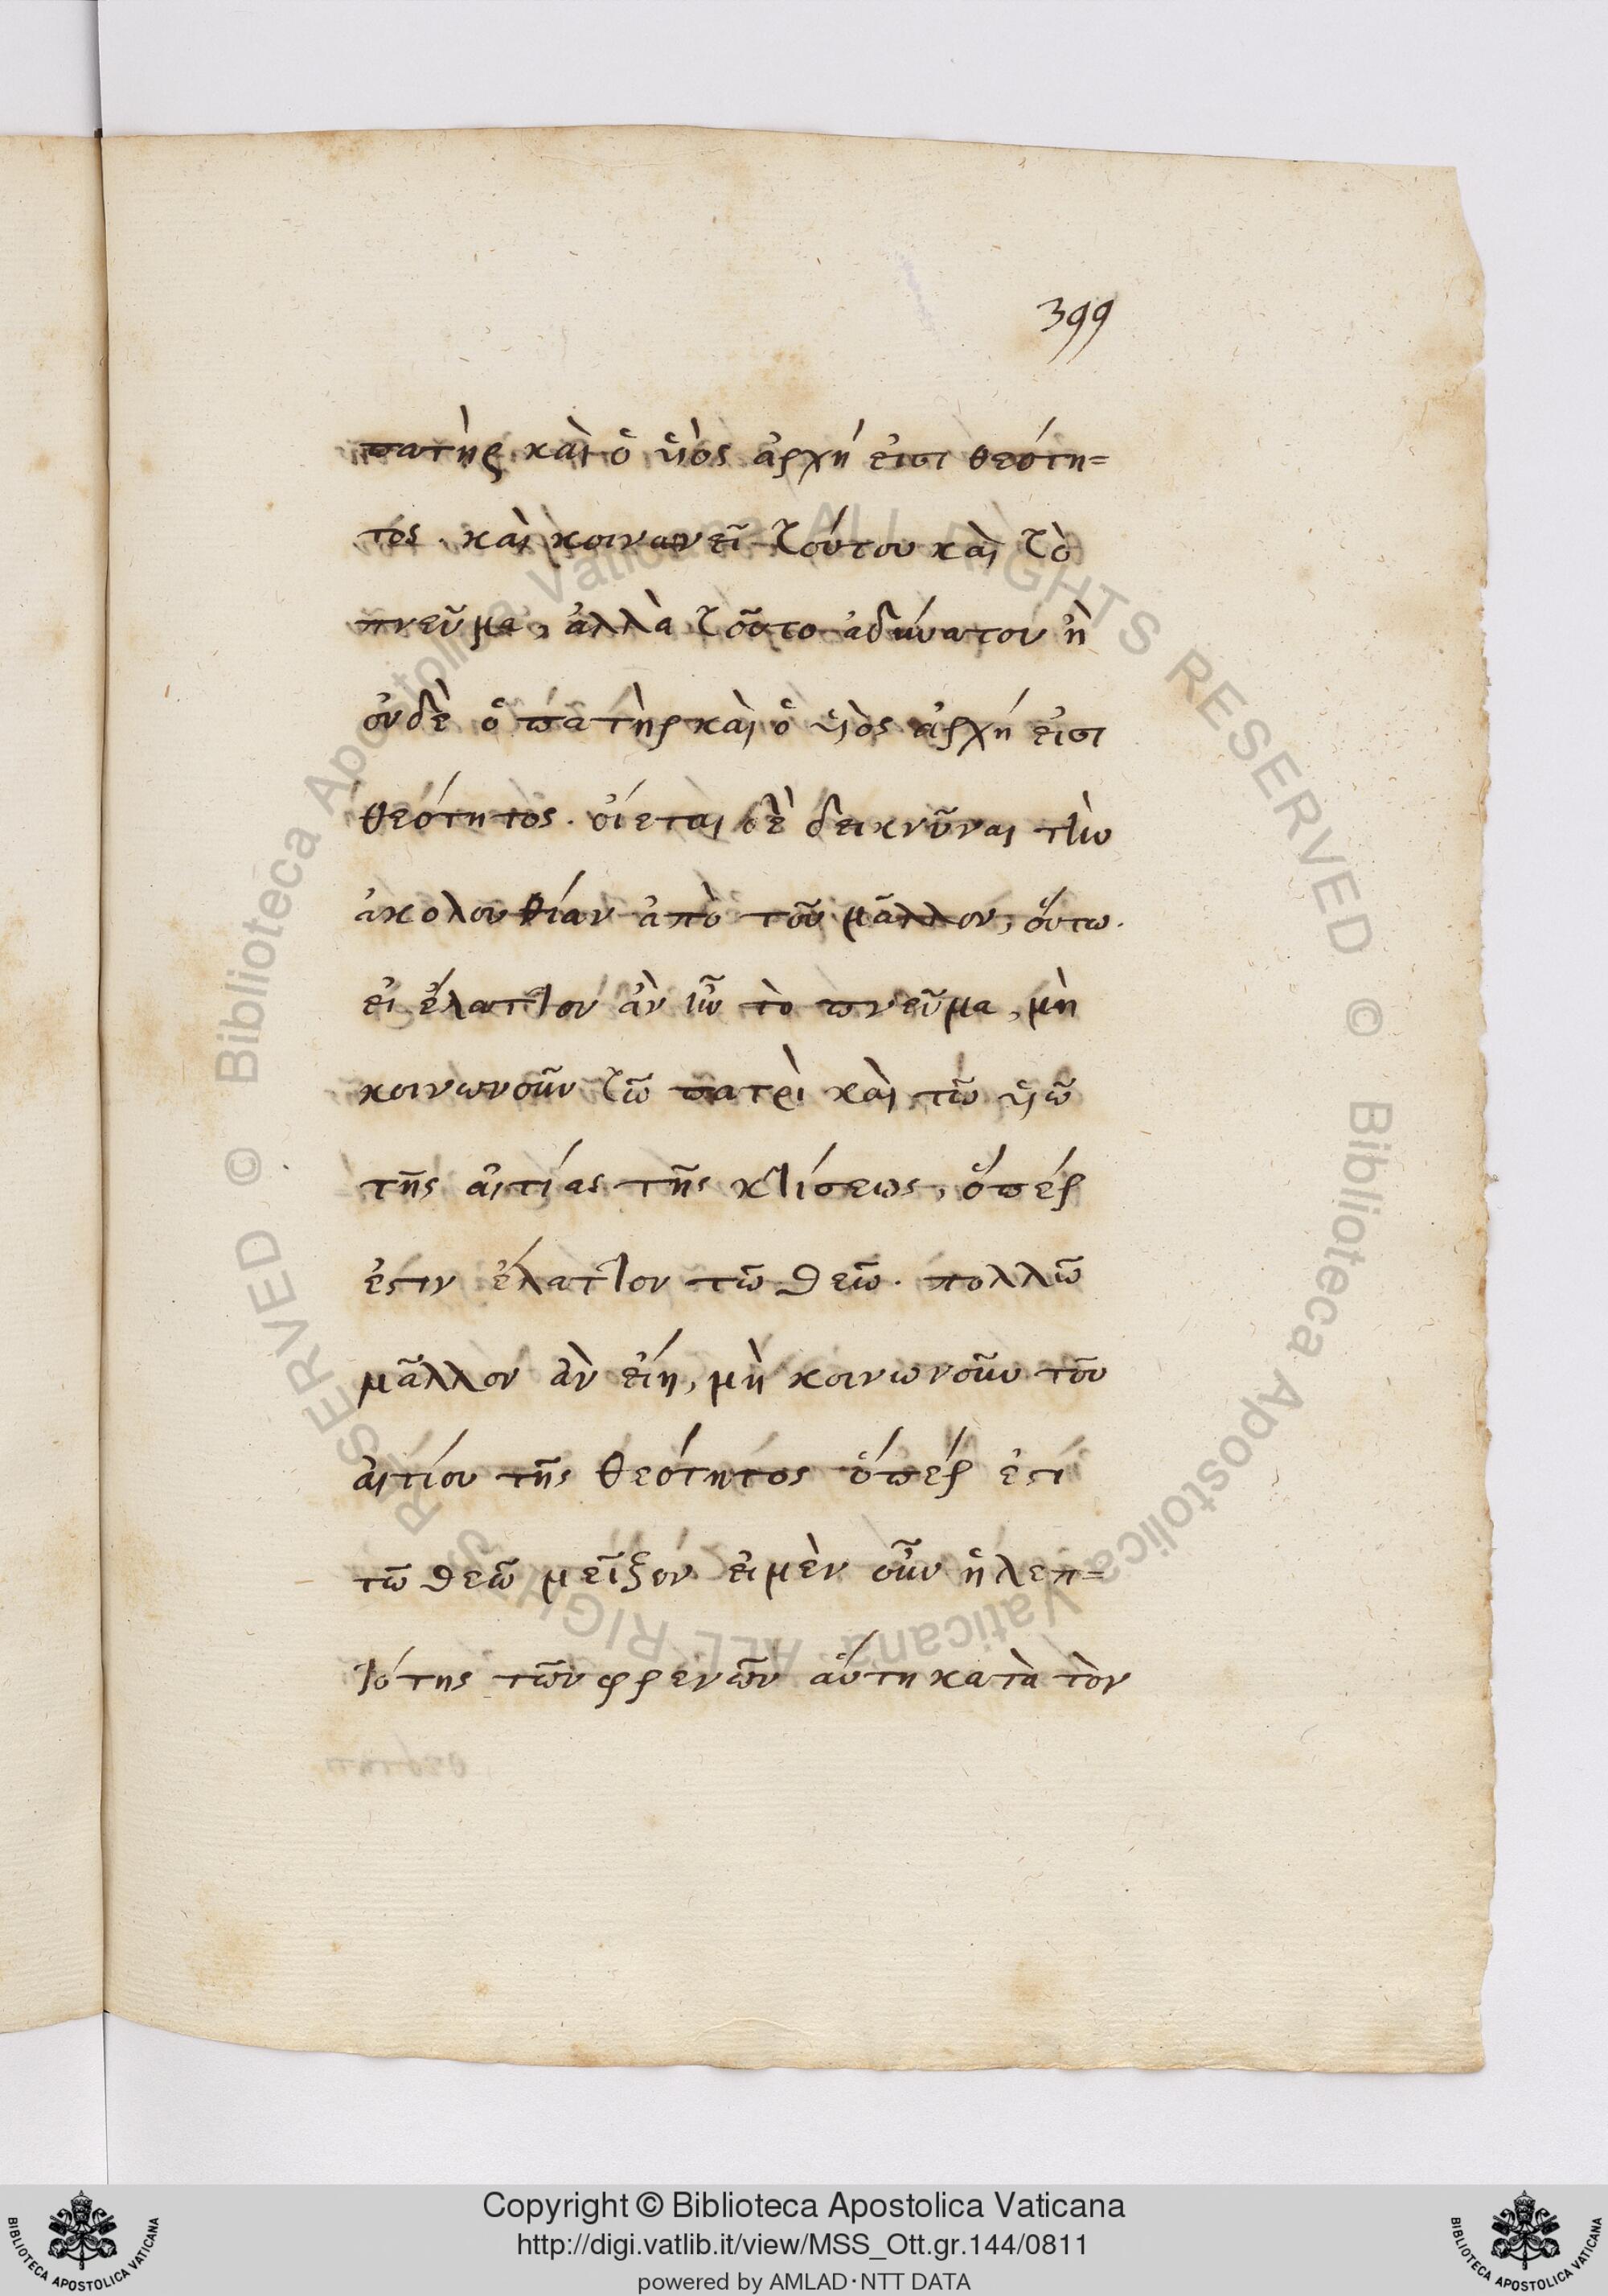 399
πατὴρ καὶ ὁ ὑιὸς ἀρχή εἰσι θεότη=
τος. καὶ κοινωνεῖ τούτου καὶ τὸ
πνεῦμα, ἀλλὰ τοῦτο ἀδύνατον ἢ
οὐδὲ ὁ πατὴρ καὶ ὁ ὑιὸς ἀρχή εἰσι
θεότητος. οἴεται δὲ δεικνῦναι τὴν
ἀκολουθίαν ἀπὸ τοῦ μᾶλλον, οὕτω.
εἰ ἔλαττον ἀν ἦν τὸ πνεῦμα, μὴ
κοινωνοῦν τῶ πατρὶ καὶ τῶ ὑιῶ
τῆς αἰτίας τῆς κτίσεως, ὅπέρ
ἐστιν ἔλαττον τῶ θεῶ. πολλῶ
μᾶλλον ἀν εἴη, μὴ κοινωνοῦν τοῦ
αἰτίου τῆς θεότητος ὅπέρ ἐστί
τῶ θεῶ μεῖζον εἰ μὲν οὖν ἡ λεπ=
τότης τῶν φρενῶν αὕτη κατὰ τὸν
© Biblioteca Apostolica Vaticana ALL RIGHTS RESERVED © Biblioteca Apostolica Vaticana ALL RIGHTS RESERVED
Copyright © Biblioteca Apostolica Vaticana
http://digi.vatlib.it/view/MSS_Ott.gr.144/0811
powered by AMLAD·NTT DATA
BIBLIOTECA APOSTOLICA VATICANA
BIBLIOTECA APOSTOLICA VATICANA